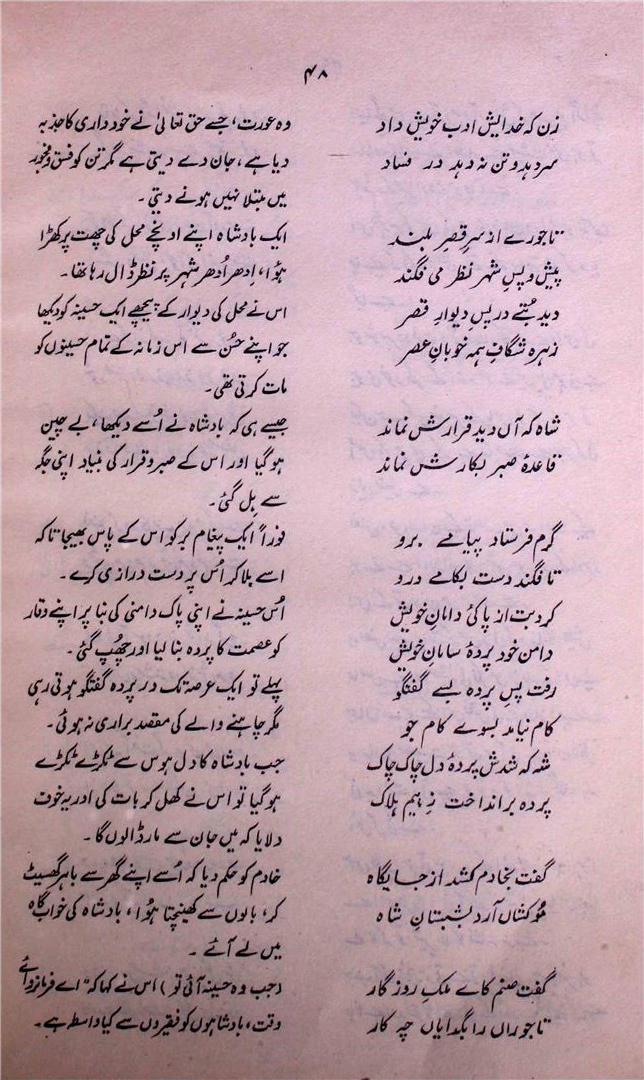 ۴۸
زن کہ خدایش ادبِ خویش داد
سر دہد و تن نہ دہد در فساد
تاجورے از سرِ قصرِ بلند
پیش و پسِ شہر نظر می فگند
دید بُتے در پسِ دیوارِ قصر
زہرہ شگافِ ہمہ خوبانِ عصر
شاہ کہ آں دید قرارش نماند
قاعدۂ صبر بکارش نماند
گرم فرستاد پیامے برو
تا فگند دست بکامے درو
کرد بت از پاکیٔ دامانِ خویش
دامن خود پردۂ سامانِ خویش
رفت پسِ پردہ بسے گفتگو
کام نیامد بسوے کام جو
شہ کہ شدش پردۂ دل چاک چاک
پردہ برانداخت ز بیم ہلاک
گفت بخادم کشد از جایگاہ
مُو کشاں آرد بشبستانِ شاہ
گفت صنم کاے ملکِ روزگار
تاجوراں را بگدایاں چہ کار
وہ عورت، جسے حق تعالیٰ نے خودداری کا جذبہ
دیا ہے، جان دے دیتی ہے مگر تن کو فسق و فجور
میں مبتلا نہیں ہونے دیتی۔
ایک بادشاہ اپنے اونچے محل کی چھت پر کھڑا
ہؤا، اِدھر اُدھر شہر پر نظر ڈال رہا تھا۔
اس نے محل کی دیوار کے پیچھے ایک حسینہ کو دیکھا
جو اپنے حُسن سے اس زمانہ کے تمام حسینوں کو
مات کرتی تھی۔
جیسے ہی کہ بادشاہ نے اُسے دیکھا، بے چین
ہو گیا اور اس کے صبر و قرار کی بنیاد اپنی جگہ
سے ہِل گئی۔
فوراً ایک پیغام بر کو اس کے پاس بھیجا تاکہ
اسے بلا کر اُس پر دست درازی کرے۔
اُس حسینہ نے اپنی پاک دامنی کی بنا پر اپنے وقار
کو عصمت کا پردہ بنا لیا اور چھُپ گئی۔
پہلے تو ایک عرصہ تک در پردہ گفتگو ہوتی رہی
مگر چاہنے والے کی مقصد براری نہ ہوئی۔
جب بادشاہ کا دل ہوس سے ٹکڑے ٹکڑے
ہو گیا تو اس نے کھل کر بات کی اور یہ خوف
دلایا کہ میں جان سے مار ڈالوں گا۔
خادم کو حکم دیا کہ اُسے اپنے گھر سے باہر گھسیٹ
کر، بالوں سے کھینچتا ہُوا، بادشاہ کی خواب گاہ
میں لے آئے۔
(جب وہ حسینہ آئی تو) اس نے کہا کہ "اے فرمانروائے
وقت، بادشاہوں کو فقیروں سے کیا واسطہ ہے۔